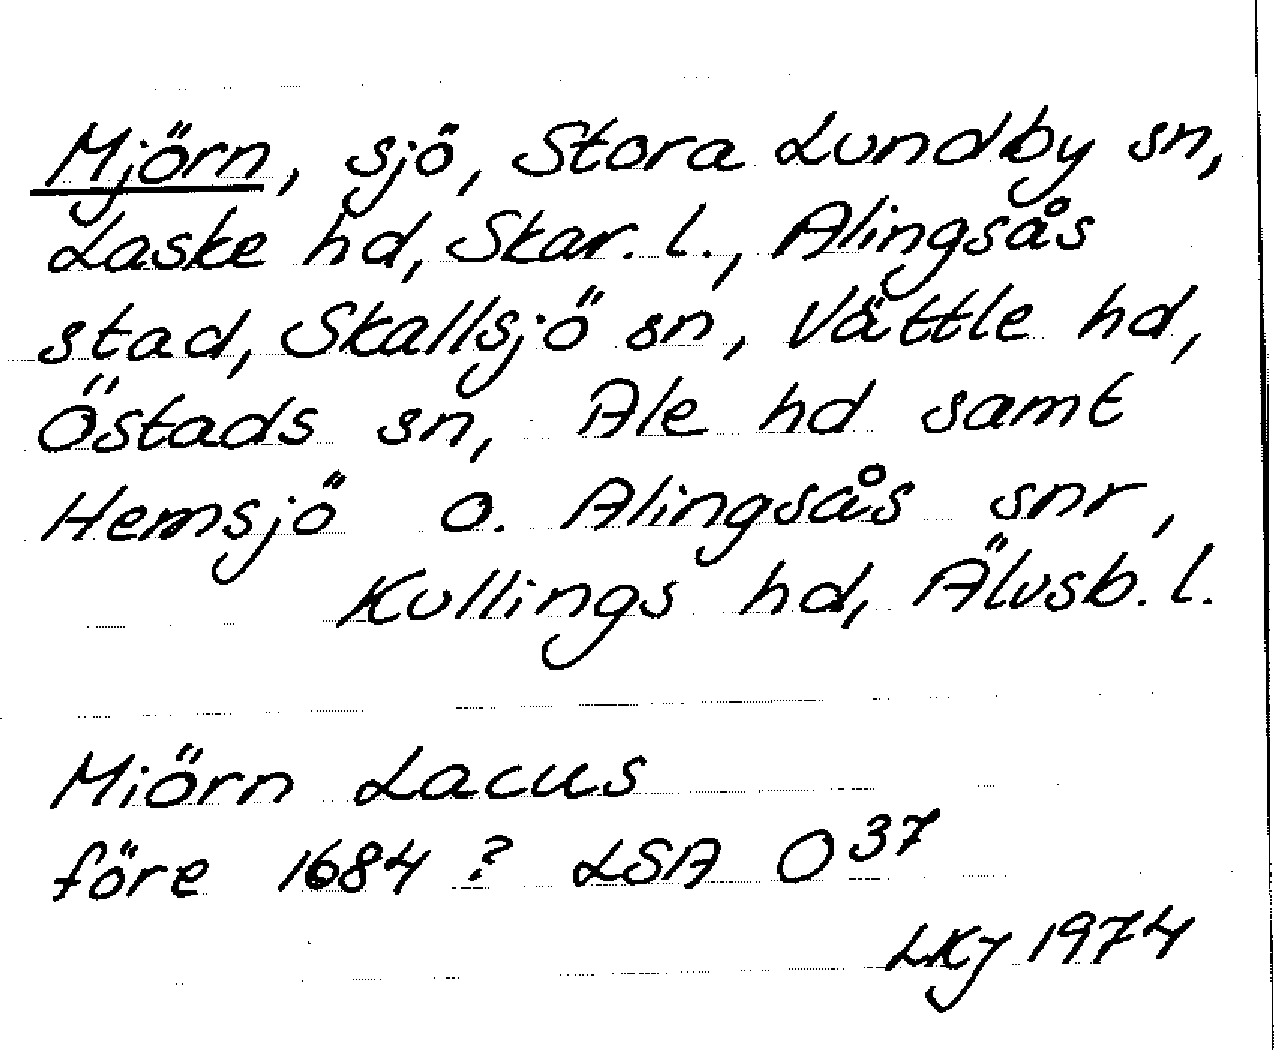 Mjörn, sjö, Stora Lundby sn,
Laske hd, Skar. l., Alingsås
stad, Skallsjö sn, Vättle hd,
Östads sn, Ale hd samt
Hemsjö o. Alingsås snr,
Kullings hd, Älvsb. l.
Miörn Lacus
före 1684 ? LSA O³⁷
LKJ 1974